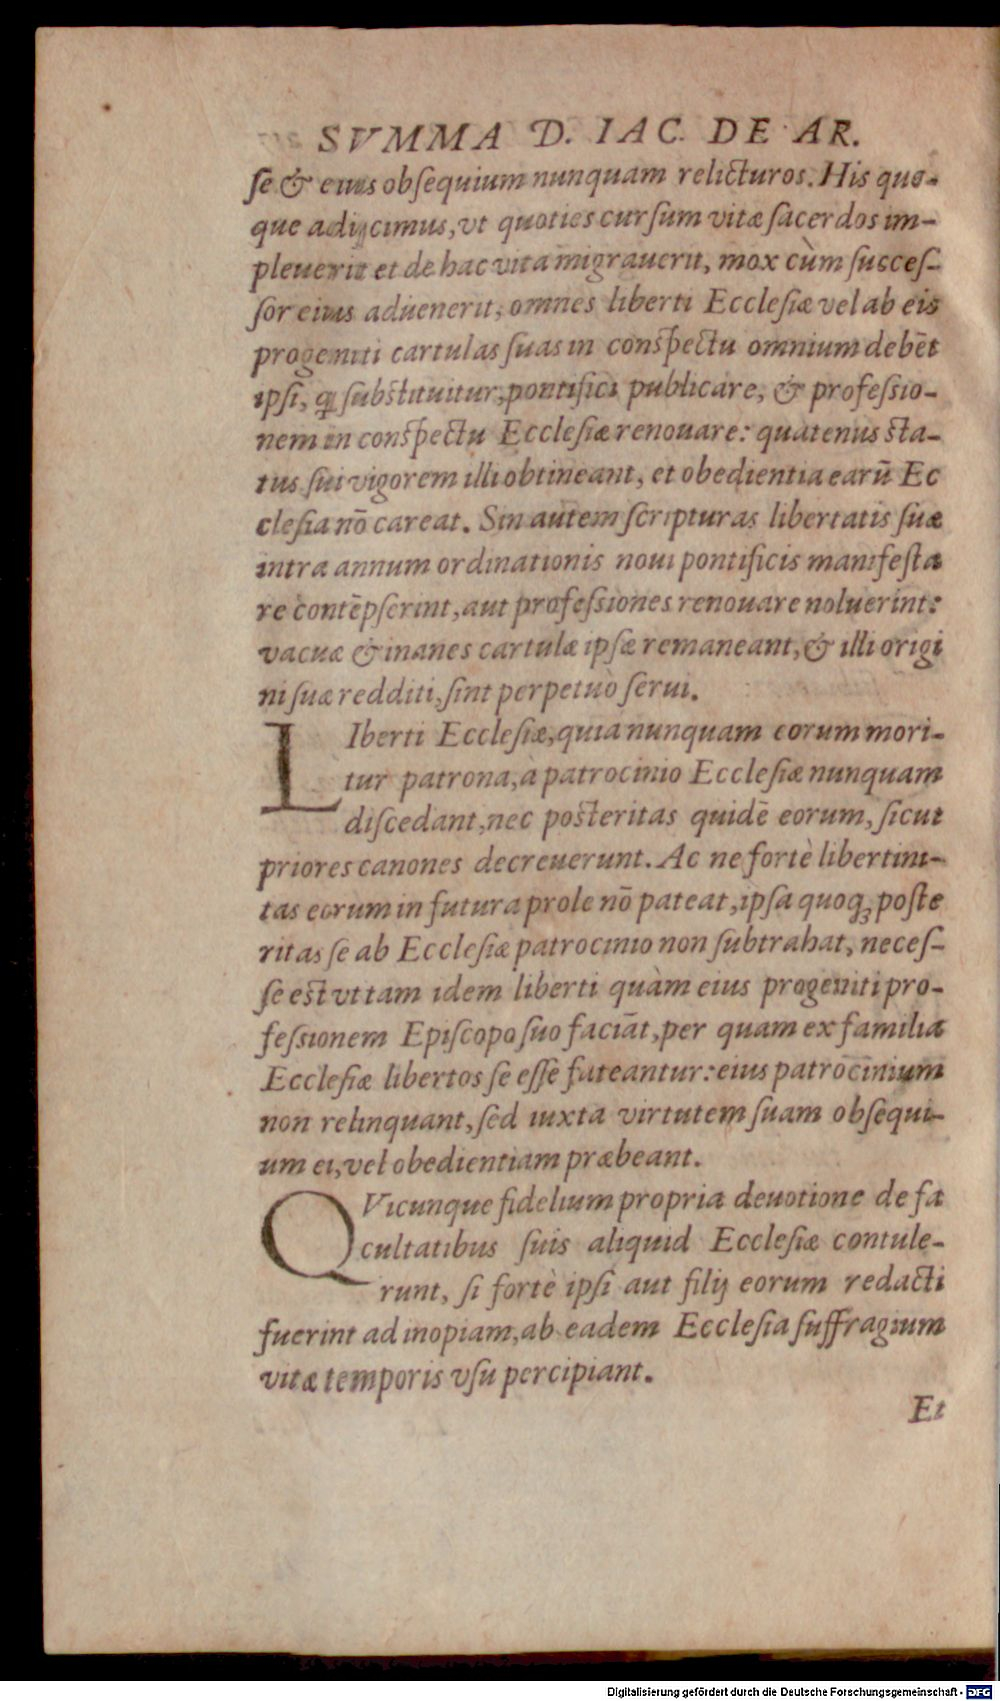 SVMMA D. IAC. DE AR.
ſe & eius obſequium nunquam relicturos. His quo-
que adijcimus, vt quoties curſum vitæ ſacerdos im-
pleuerit et de hac vita migrauerit, mox cùm ſucceſ-
ſor eius aduenerit, omnes liberti Eccleſiæ vel ab eis
progeniti cartulas ſuas in conſpectu omnium debēt
ipſi, qui ſubſtituitur, pontifici publicare, & profeſsio-
nem in conſpectu Eccleſiæ renouare: quatenus ſta-
tus ſui vigorem illi obtineant, et obedientia earū Ec
cleſia nō careat. Sin autem ſcripturas libertatis ſuæ
intra annum ordinationis noui pontificis manifeſta
re contēpſerint, aut profeſsiones renouare noluerint:
vacuæ & inanes cartulæ ipſæ remaneant, & illi origi
ni ſuæ redditi, ſint perpetuò ſerui.
LIberti Eccleſiæ, quia nunquam eorum mori-
tur patrona, à patrocinio Eccleſiæ nunquam
diſcedant, nec poſteritas quidē eorum, ſicut
priores canones decreuerunt. Ac ne fortè libertini-
tas eorum in futura prole nō pateat, ipſa quoq; poſte
ritas ſe ab Eccleſiæ patrocinio non ſubtrahat, neceſ-
ſe eſt vt tam idem liberti quàm eius progeniti pro-
feſsionem Epiſcopo ſuo faciāt, per quam ex familia
Eccleſiæ libertos ſe eſſe fateantur: eius patrocinium
non relinquant, ſed iuxta virtutem ſuam obſequi-
um ei, vel obedientiam præbeant.
QVicunque fidelium propria deuotione de fa
cultatibus ſuis aliquid Eccleſiæ contule-
runt, ſi fortè ipſi aut filij eorum redacti
fuerint ad inopiam, ab eadem Eccleſia ſuffragium
vitæ temporis vſu percipiant.
Et
Digitalisierung gefördert durch die Deutsche Forschungsgemeinschaft - DFG